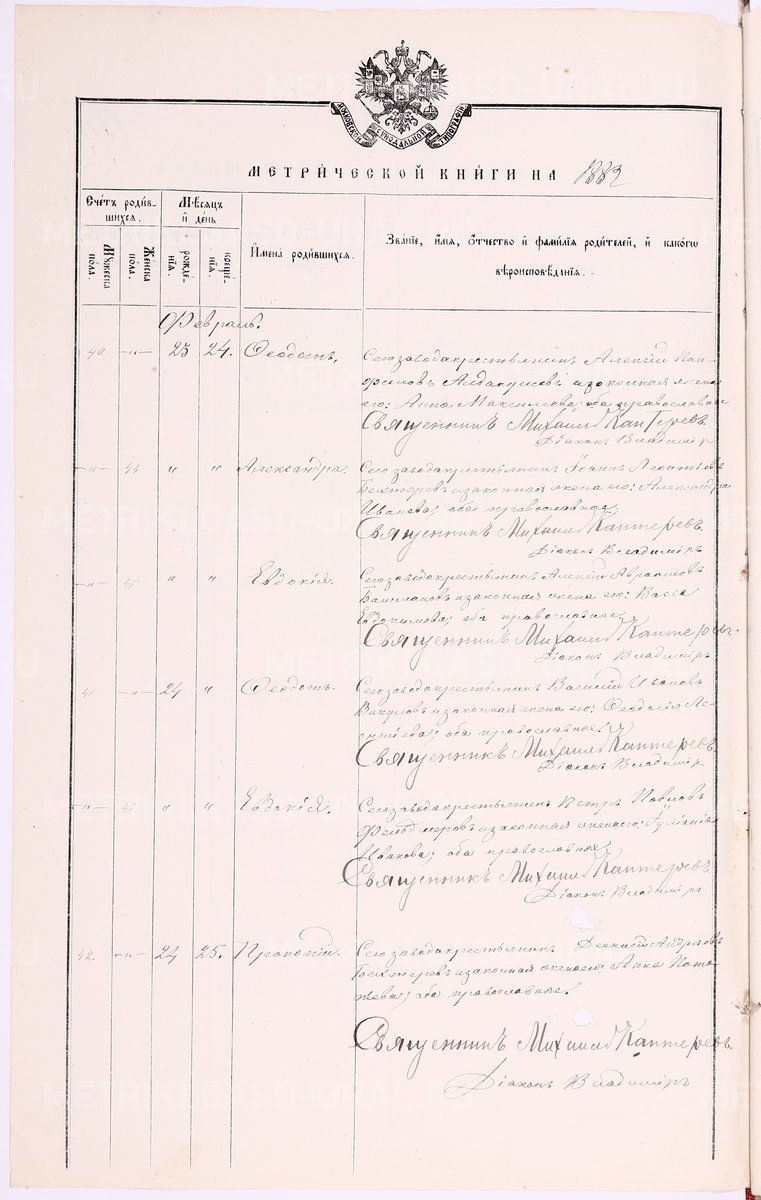 МОСКОВСКОЙ СѴНОДАЛЬНОЙ ТИПОГРАФІИ
МЕТРИ́ЧЕСКОЙ КНИ́ГИ НА 1882
Сче́тъ роди́в-
шихся.
Мѣ́сяцъ
и҆ де́нь
Мꙋ́жеска
по́ла.
Же́нска
по́ла.
рожде́-
нїѧ.
креще́-
нїѧ.
И҆мена̀ роди́вшихся.
Зва́нїе, и҆́мя, ѻ҆́тчество и҆ фами́лїя роди́телей, и҆ како́гѡ
вѣроисповѣ́данїя.
Февраль.
40 -"- 23 24. Ѳеодотъ.
Сего завода крестьянинъ Алексій Пан-
филовъ и законная жена
его: Анна Максимова; оба православные
Священникъ Михаилъ Каптеревъ.
Діаконъ Владиміръ
-"- 44 " " Александра.
Сего завода крестьянинъ Іоаннъ Леонтіевъ
Бехтеревъ и законная жена его: Александра
Иванова; оба православные
Священникъ Михаилъ Каптеревъ
Діаконъ Владиміръ
-"- 45 " " Евдокія.
Сего завода крестьянинъ Алексій Авраамовъ
и законная жена его: Васса
Евдокимова; оба православные
Священникъ Михаилъ Каптеревъ.
Діаконъ Владиміръ
41 -"- 24 " Ѳеодотъ.
Сего завода крестьянинъ Василій Ивановъ
Викуловъ и законная жена его: Ѳеодосія Ле-
онтіева; оба православные
Священникъ Михаилъ Каптеревъ
Діаконъ Владиміръ
-"- 46 " " Евдокія.
Сего завода крестьянинъ Петръ Павловъ
и законная жена его: Іуліанія
Иванова; оба православные
Священникъ Михаилъ Каптеревъ
Діаконъ Владиміръ
42. -"- 24 25. Прокопій.
Сего завода крестьянинъ Діонисій Андреевъ
Бехтеревъ и законная жена его: Анна
оба православные.
Священникъ Михаилъ Каптеревъ.
Діаконъ Владиміръ